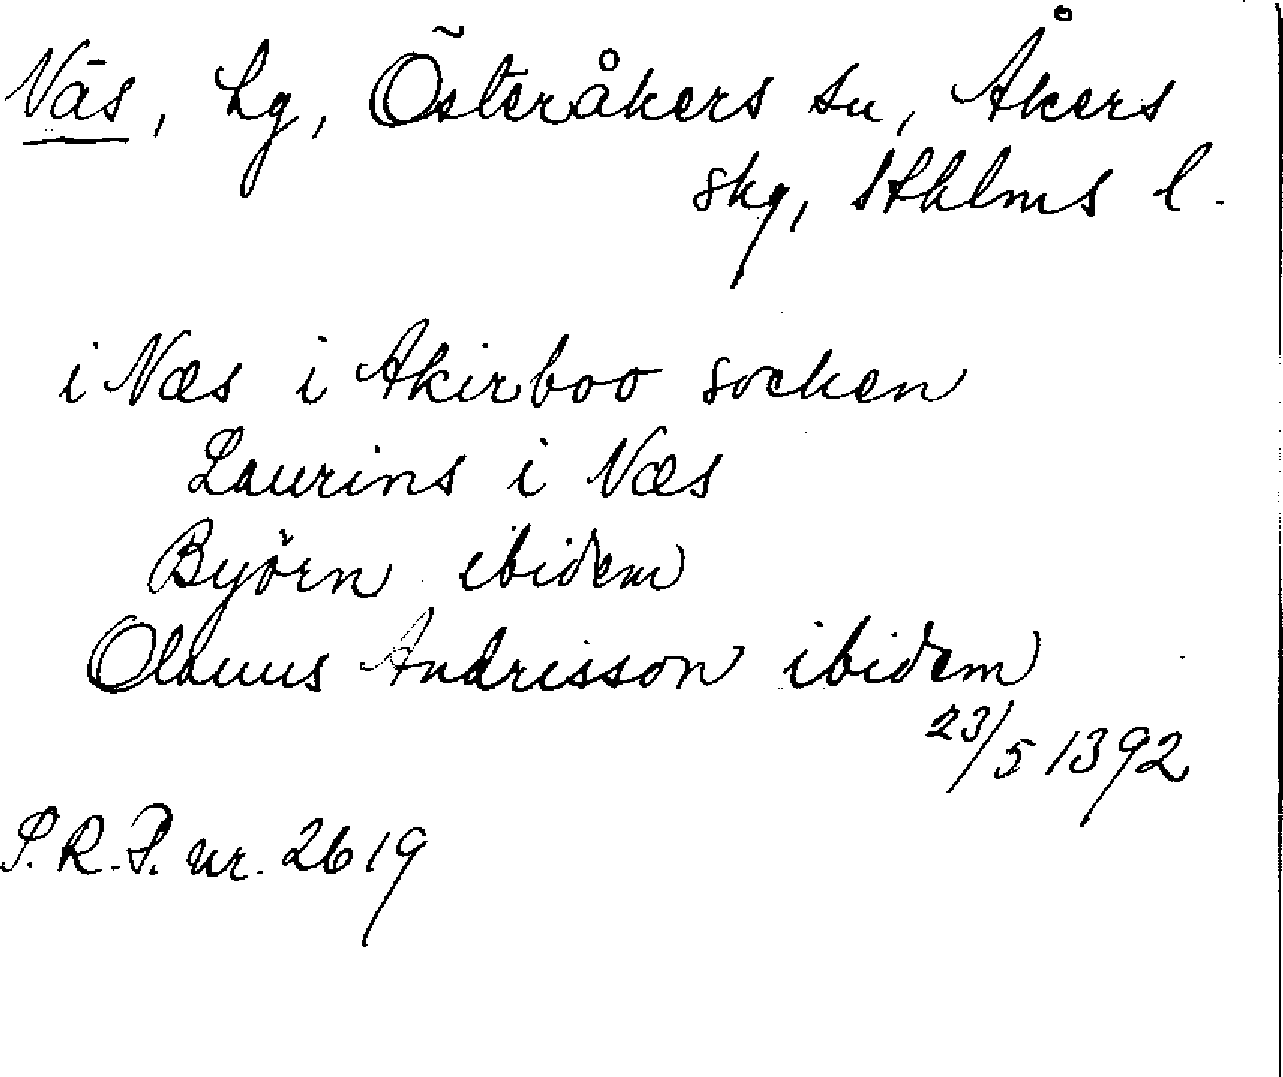 Näs, hg, Österåkers sn, Åkers
skg, Sthlms l.
i Næs i Akirboo socken
Laurins i Næs
Byörn ibidem
Olauus Andrisson ibidem
23/5 1392
S.R.P. nr. 2619